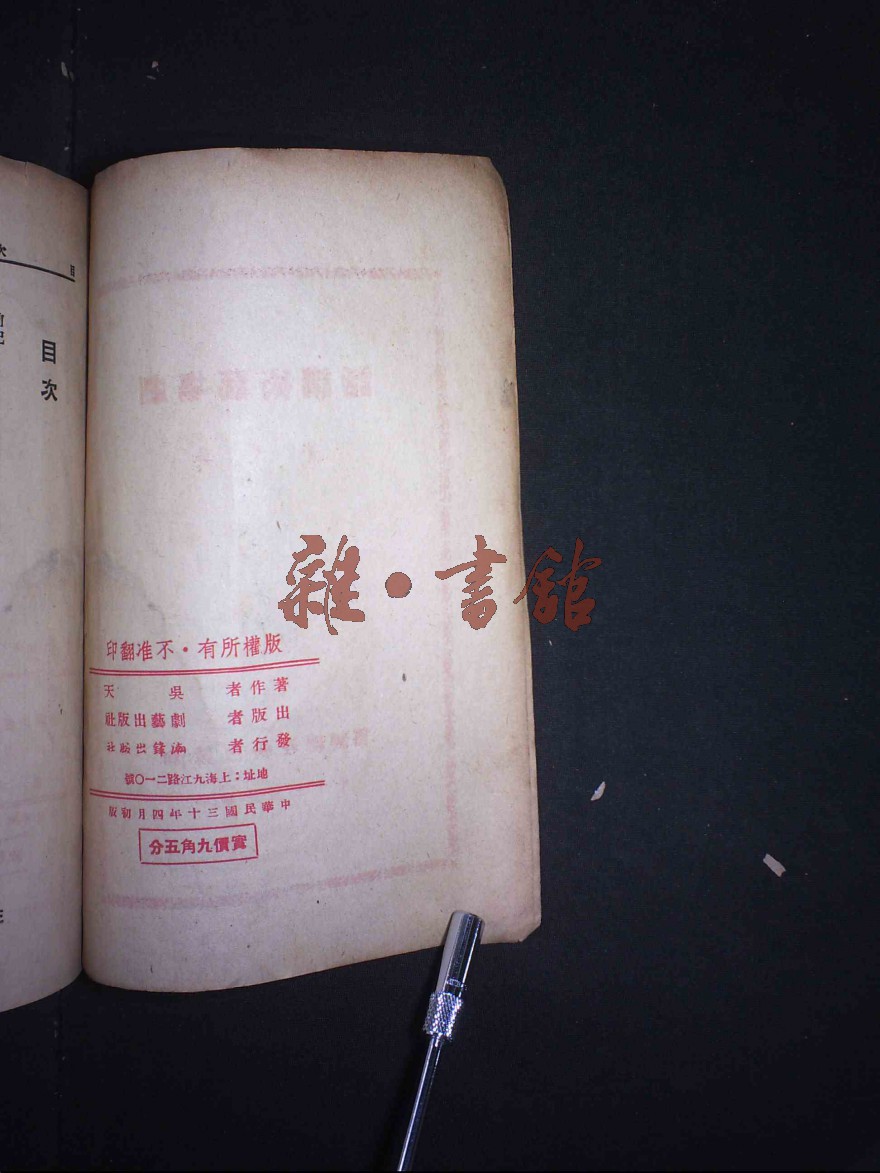 目次
目次
雜・書館
版權所有・不准翻印
著作者 吳天
出版者 劇藝出版社
發行者 潮鋒出版社
地址：上海九江路二一〇號
中華民國三十年四月初版
實價九角五分